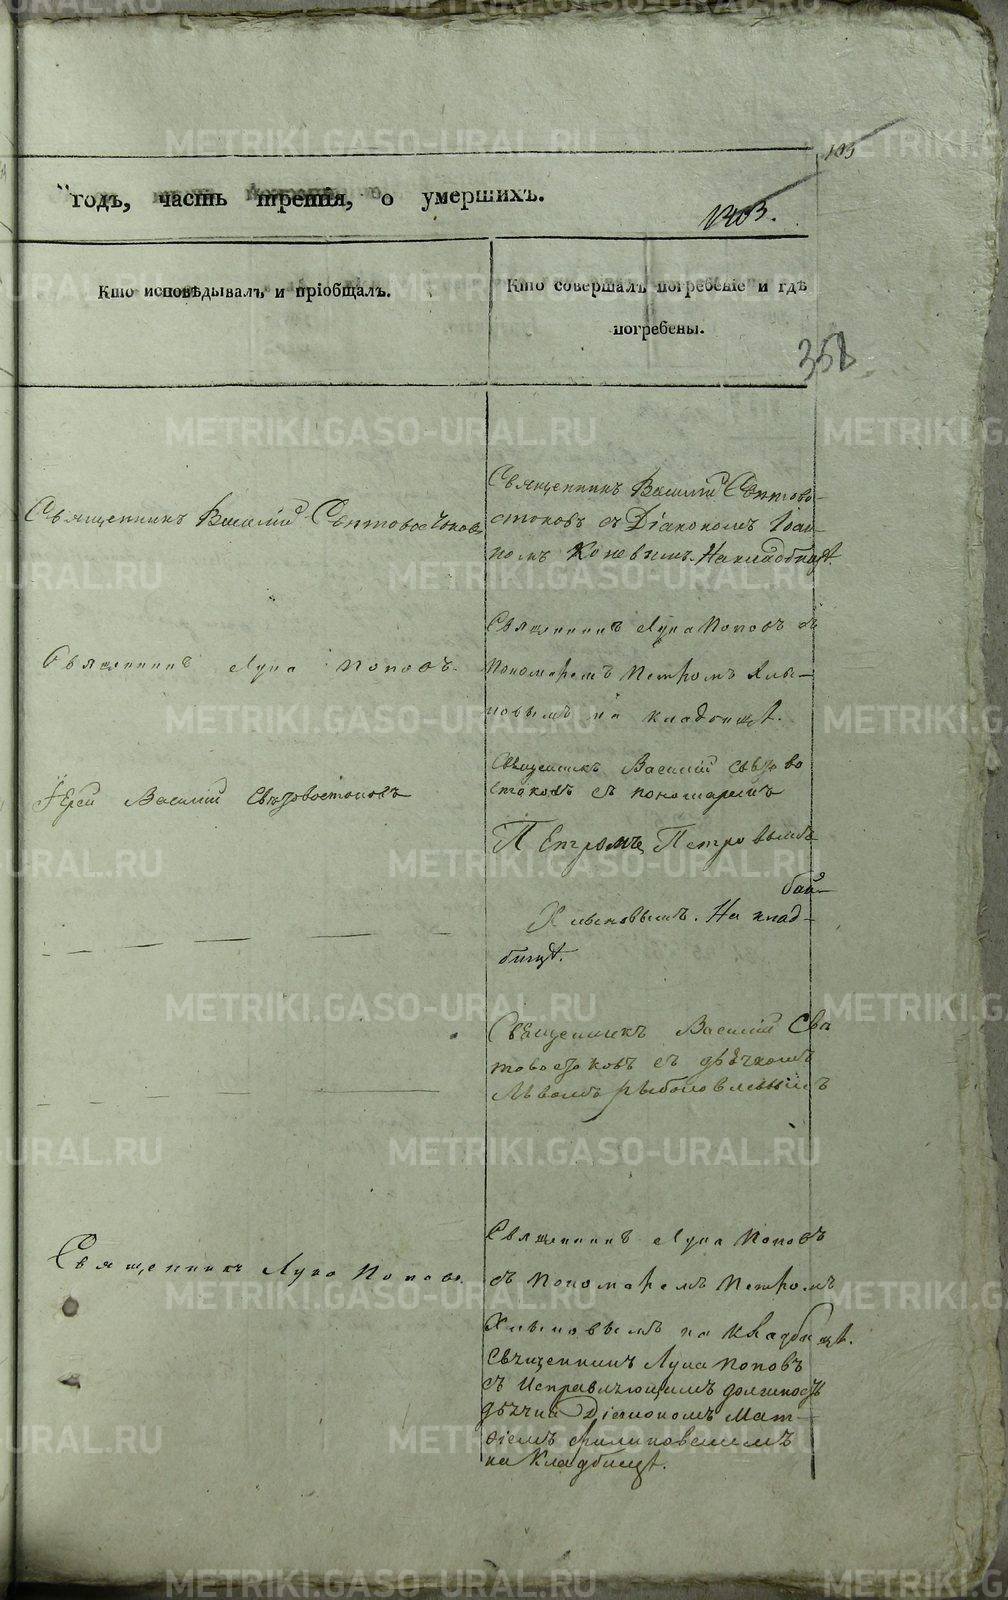 103
годъ, часть третія, о умершихъ.
1303.
Кто исповѣдывалъ и пріобщалъ.
Кто совершалъ погребеніе и гдѣ
погребены.
358
Священникъ Василій Свѣтовостоковъ
Священникъ Василій Свѣтово-
стоковъ съ Діакономъ Іоан-
номъ Коневымъ. На кладбищѣ.
Священникъ Лука Поповъ.
Священникъ Лука Поповъ съ
Пономаремъ Петромъ Хлы-
новымъ на кладбищѣ.
Іерей Василій Свѣтовостоковъ
Священникъ Василій Свѣтово
стоковъ съ пономаремъ
Петромъ Петровымъ
Хлыновымъ. На клад-
бищѣ.
Священникъ Василій Свѣ
товостоковъ съ дьячкомъ
Львомъ Рыболовлевымъ
Священникъ Лука Поповъ.
Священникъ Лука Поповъ
съ Пономаремъ Петромъ
Хлыновымъ на кладбищѣ.
Священникъ Лука Поповъ
съ Исправляющимъ должность
дьячка Діакономъ Мат-
ѳіемъ
на Кладбищѣ.
METRIKI.GASO-URAL.RU